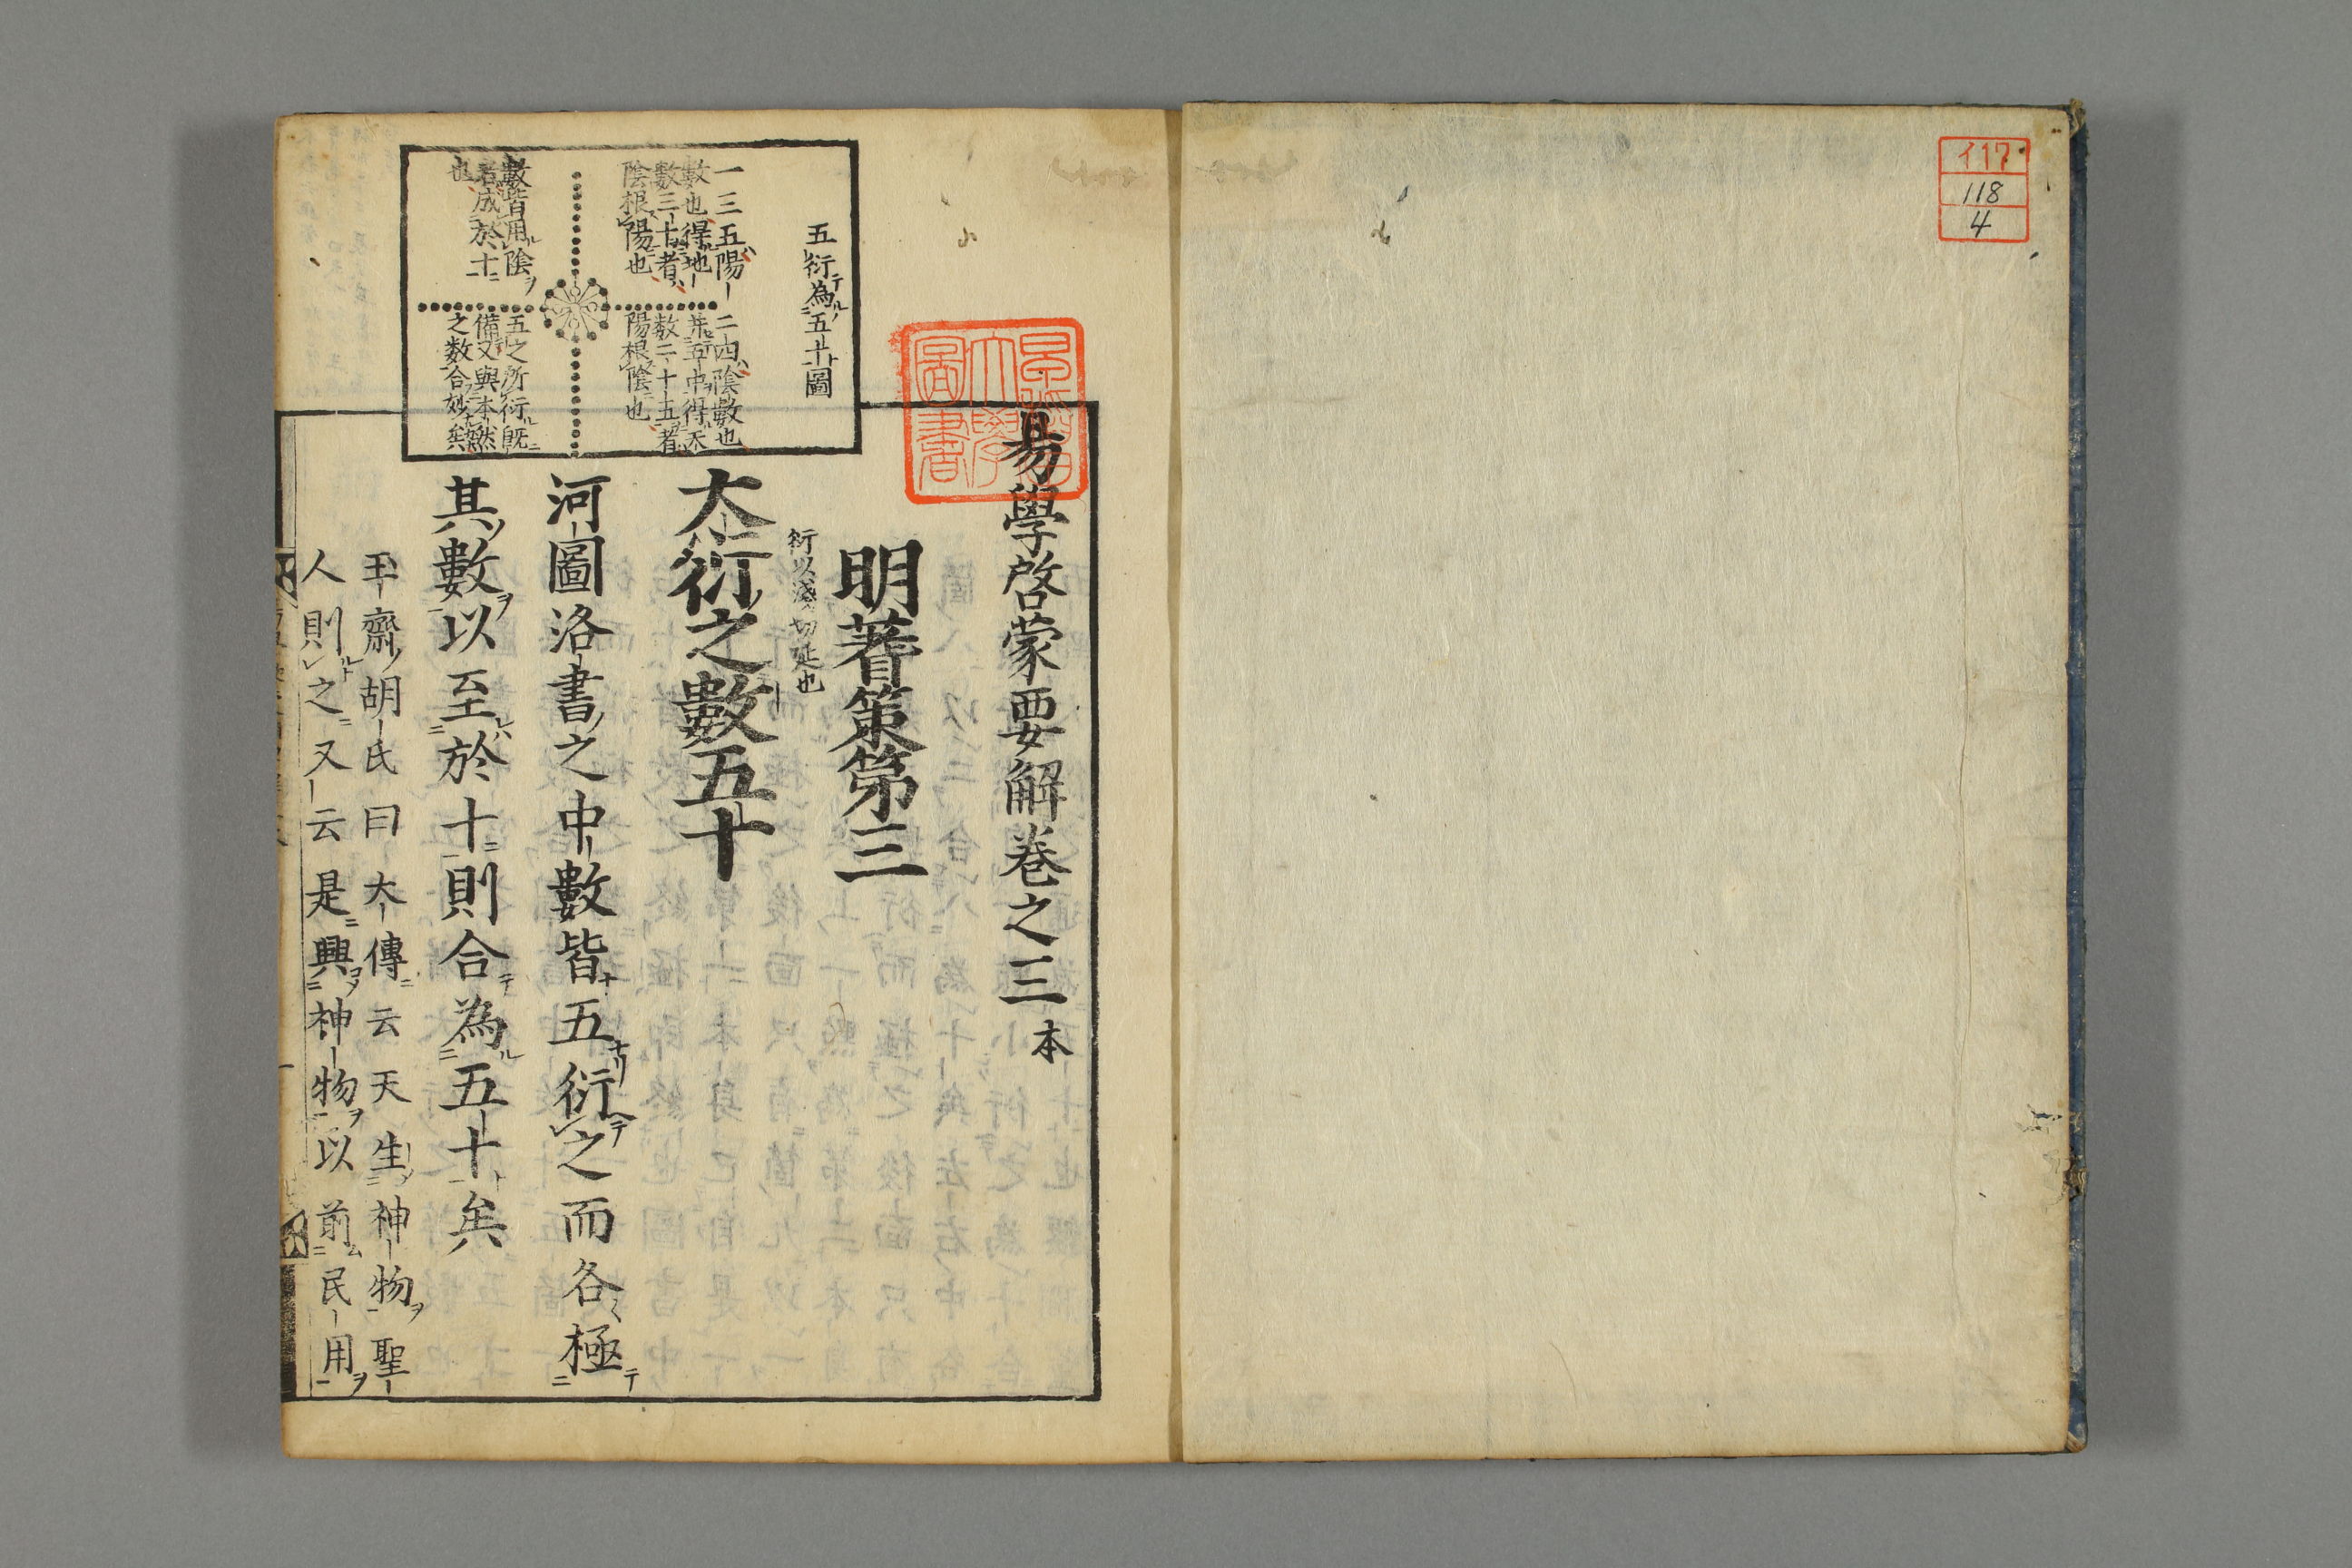 イ17
118
4
易學啓蒙要解卷之三 本
明蓍策第三
衍以淺切延也
大衍之數五十
河圖洛書之中數皆五衍之而各極
其數以至於十則合為五十矣
玉齋胡氏曰大傳云天生神物聖
人則之又云是興神物以前民用
五衍為五十圖
一三五陽
數也得地
數三十者
陰根陽也
二四陰數也
并五中得天
數二十五者
陽根陰也
數皆用陰
者成於十
也
五之所衍既
備又與本然
之数合妙矣